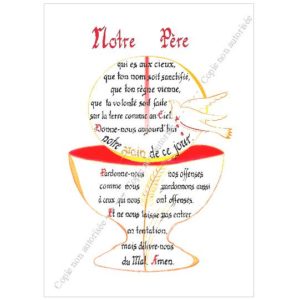 Notre Père
qui es aux cieux,
que ton nom soit sanctifié,
que ton règne vienne,
que ta volonté soit faite
sur la terre comme au Ciel.
Donne-nous aujourd'hui
notre pain de ce jour.
Pardonne-nous nos offenses
comme nous pardonnons aussi
à ceux qui nous ont offensés.
Et ne nous laisse pas entrer
en tentation,
mais délivre-nous
du Mal. Amen.
Copie non autorisée
Copie non autorisée